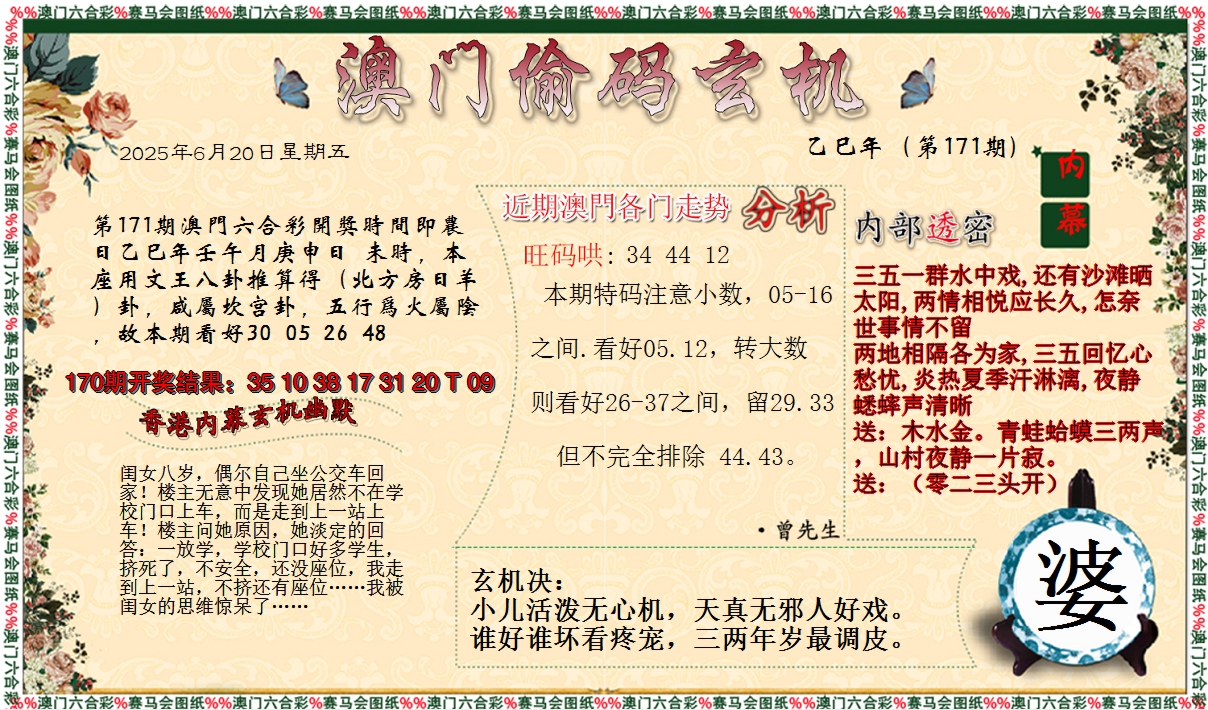 %%澳门六合彩%赛马会图纸%%澳门六合彩%赛马会图纸%%澳门六合彩%赛马会图纸%%澳门六合彩%赛马会图纸%%澳门六合彩%赛马会图纸%%澳门六合彩%赛马会图纸%%
澳门偷码玄机
2025年6月20日星期五
乙巳年（第171期）
内幕
第171期澳門六合彩開獎時間即農
日乙巳年壬午月庚申日 未時，本
座用文王八卦推算得（北方房日羊
）卦，咸屬坎宫卦，五行爲火屬陰
，故本期看好30 05 26 48
170期开奖结果：35 10 38 17 31 20 T 09
香港内幕玄机幽默
闺女八岁，偶尔自己坐公交车回
家！楼主无意中发现她居然不在学
校门口上车，而是走到上一站上
车！楼主问她原因，她淡定的回
答：一放学，学校门口好多学生，
挤死了，不安全，还没座位，我走
到上一站，不挤还有座位……我被
闺女的思维惊呆了……
近期澳門各门走势 分析
旺码哄: 34 44 12
本期特码注意小数，05-16
之间.看好05.12，转大数
则看好26-37之间，留29.33
但不完全排除 44.43。
·曾先生
内部透密
三五一群水中戏,还有沙滩晒
太阳,两情相悦应长久,怎奈
世事情不留
两地相隔各为家,三五回忆心
愁忧,炎热夏季汗淋漓,夜静
蟋蟀声清晰
送：木水金。青蛙蛤蟆三两声
，山村夜静一片寂。
送：（零二三头开）
玄机决：
小儿活泼无心机，天真无邪人好戏。
谁好谁坏看疼宠，三两年岁最调皮。
婆
%%澳门六合彩%赛马会图纸%%澳门六合彩%赛马会图纸%%澳门六合彩%赛马会图纸%%澳门六合彩%赛马会图纸%%澳门六合彩%赛马会图纸%%澳门六合彩%赛马会图纸%%